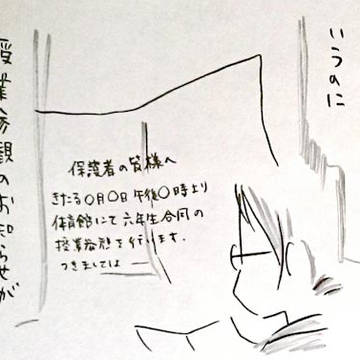 いうのに
保護者の皆様へ
きたる〇月〇日午後〇時より
体育館にて六年生合同の
授業参観を行います.
つきましては
授業参観のお知らせが